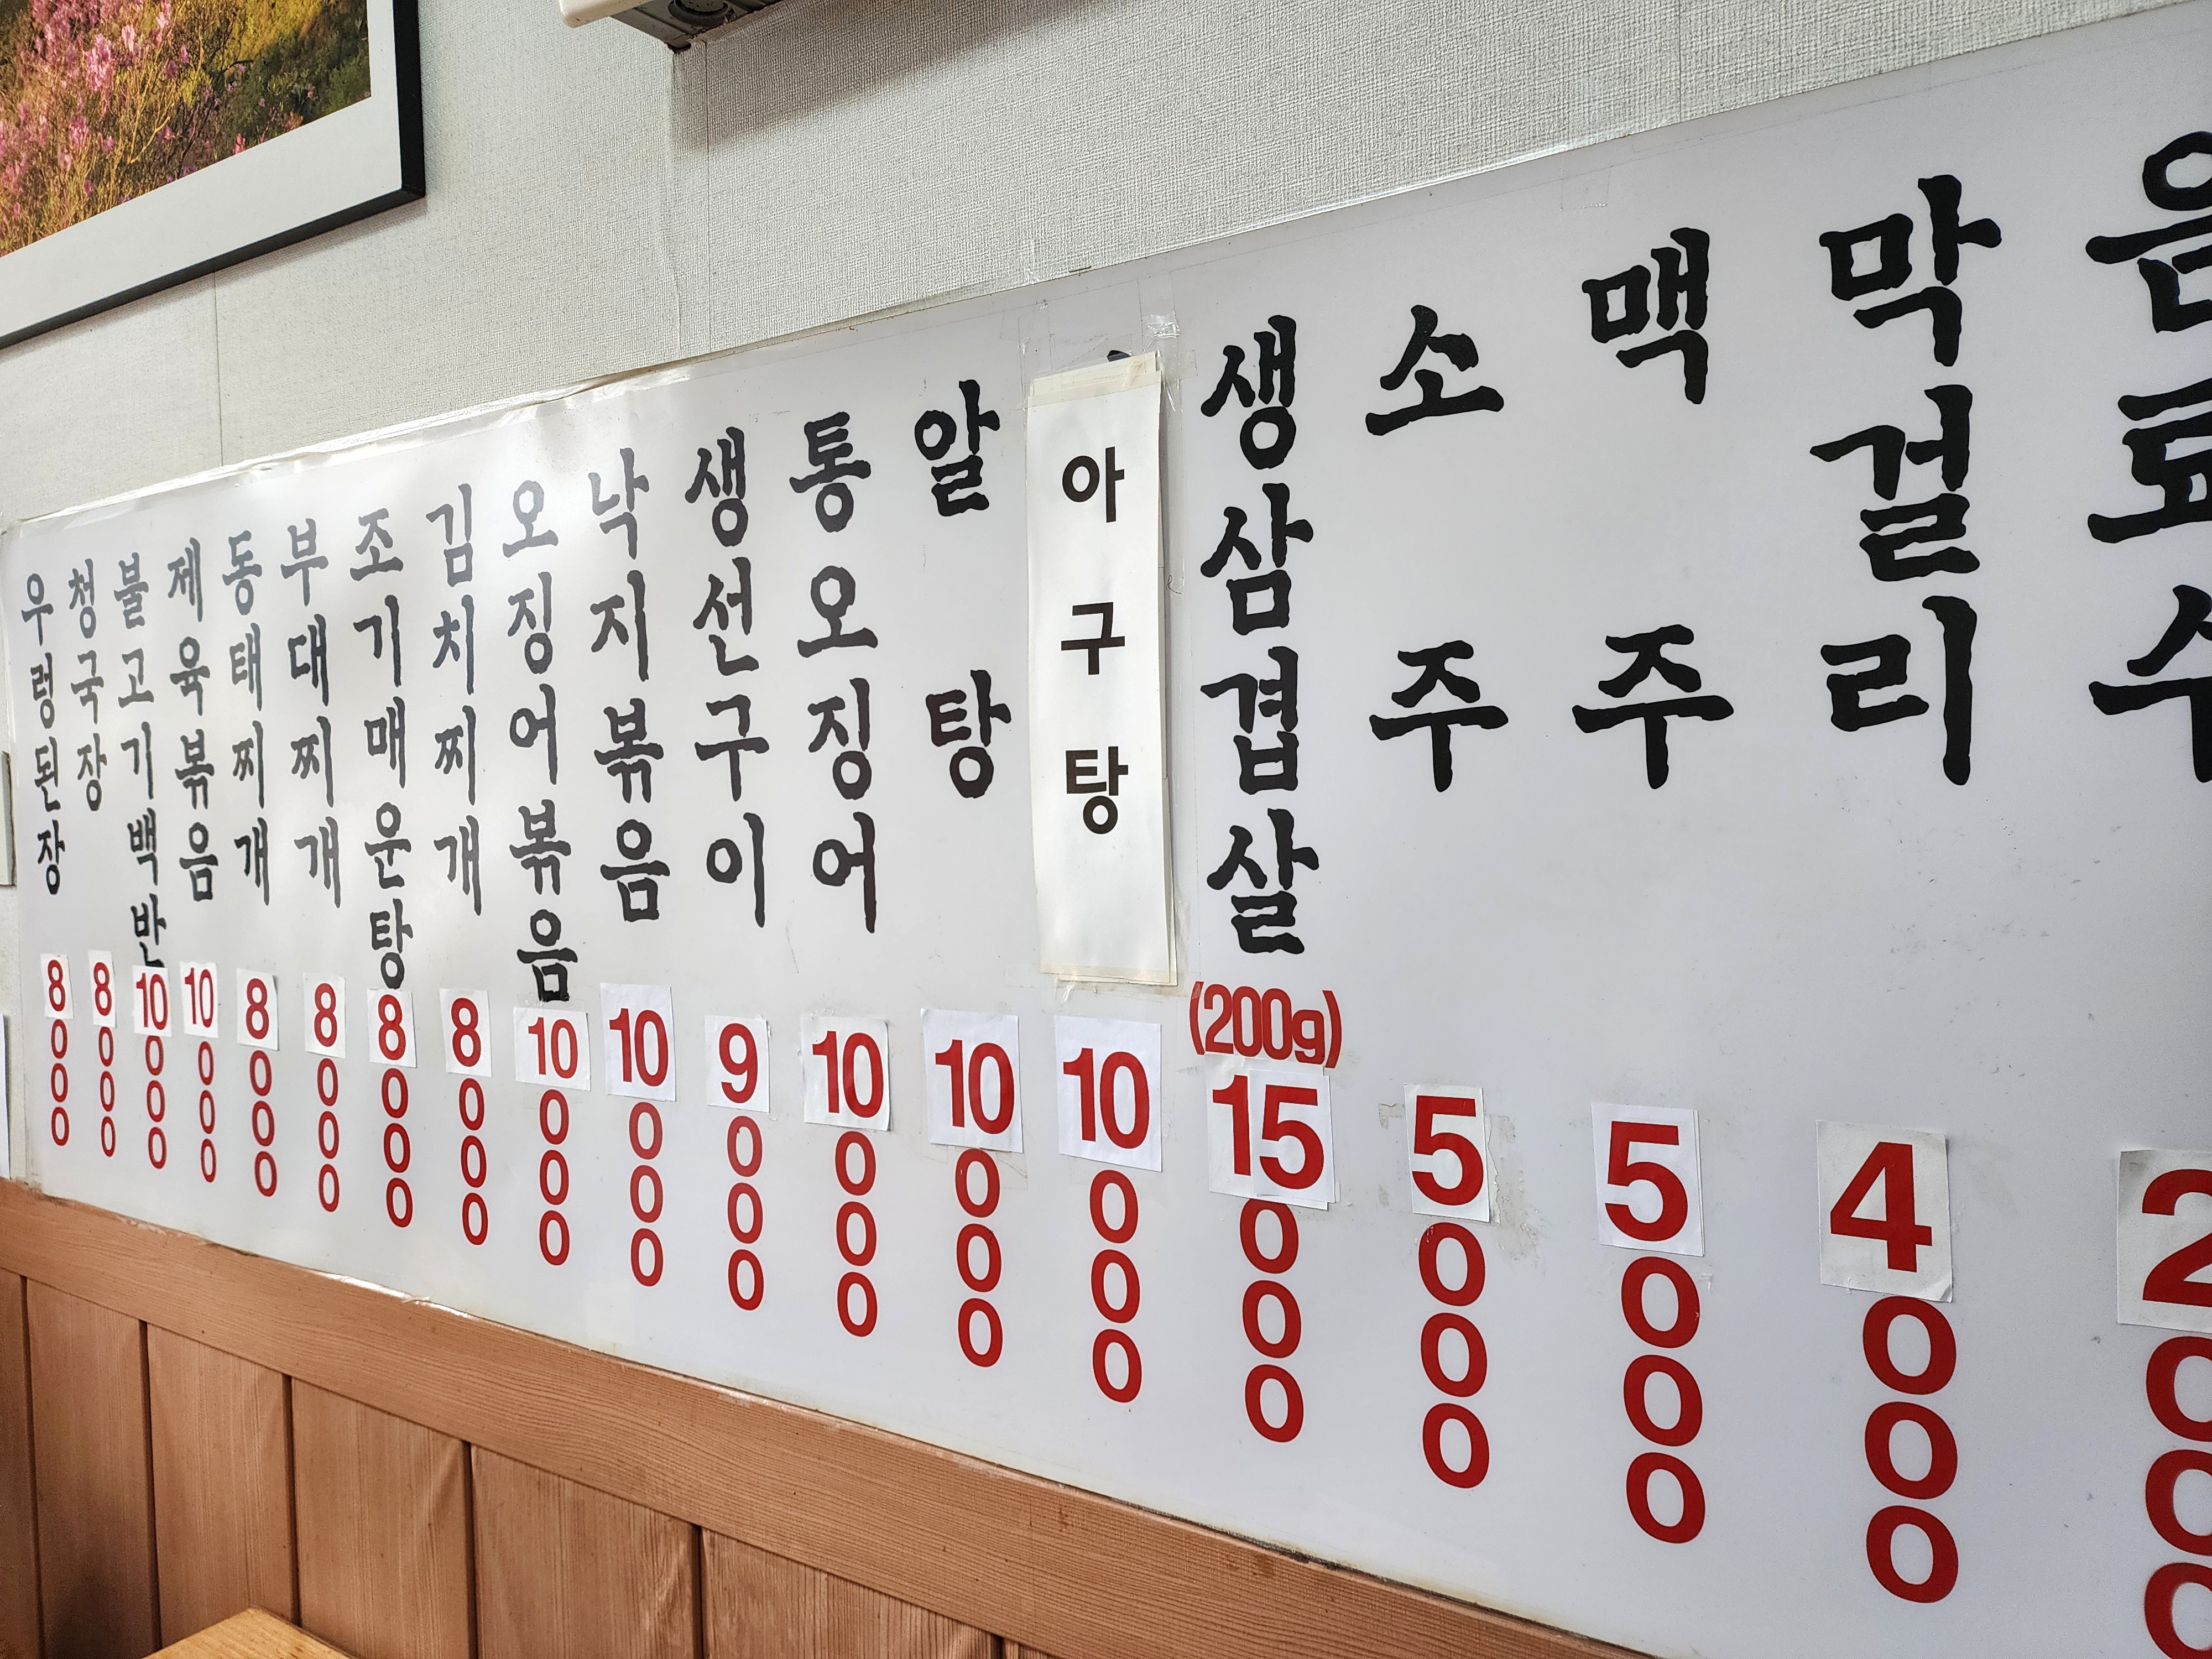 우렁된장 8000
청국장 8000
불고기백반 10000
제육볶음 10000
동태찌개 8000
부대찌개 8000
조기매운탕 8000
김치찌개 8000
오징어볶음 10000
낙지볶음 10000
생선구이 9000
통오징어 10000
알탕 10000
아구탕 10000
생삼겹살 (200g) 15000
소주 5000
맥주 5000
막걸리 4000
음료수 2000